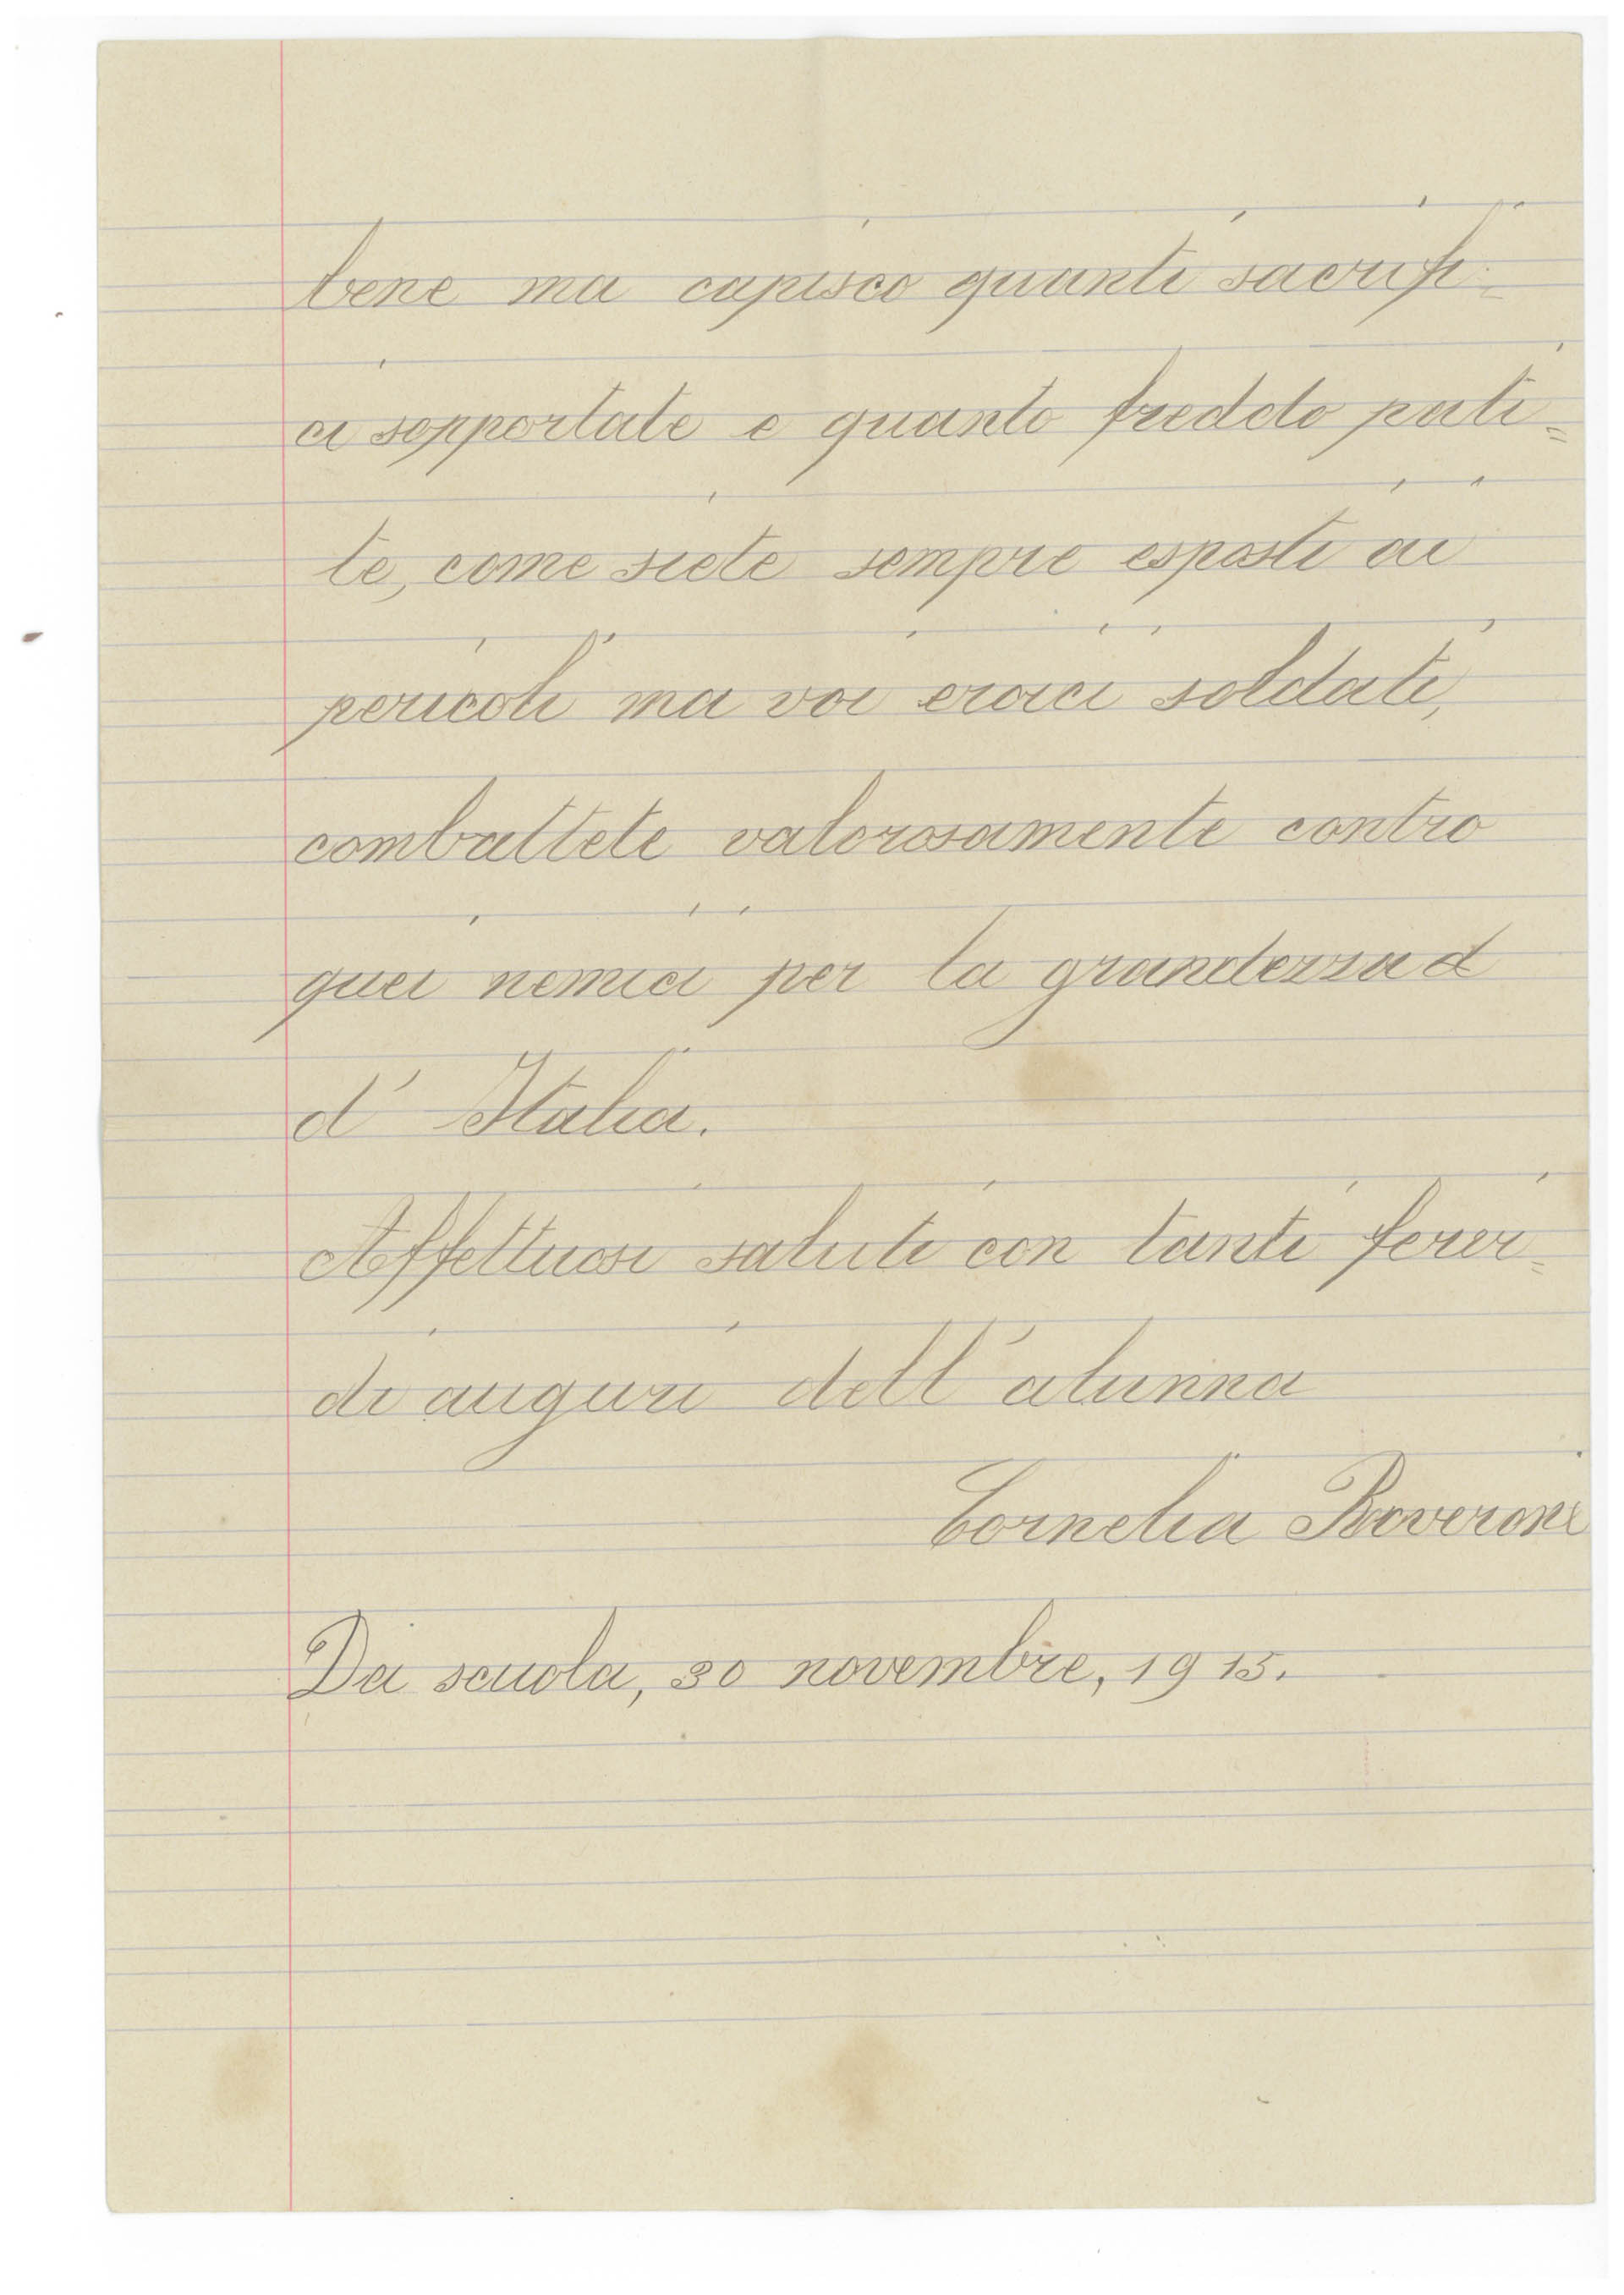 bene ma capisco quanti sacrifi=
ci sopportate e quanto freddo pati=
te, come siete sempre esposti ai
pericoli ma voi eroici soldati,
combattete valorosamente contro
quei nemici per la grandezza d
d' Italia.
Affettuosi saluti con tanti fervi=
di auguri dell' alunna
Cornelia Roveroni
Da scuola, 30 novembre, 1915.